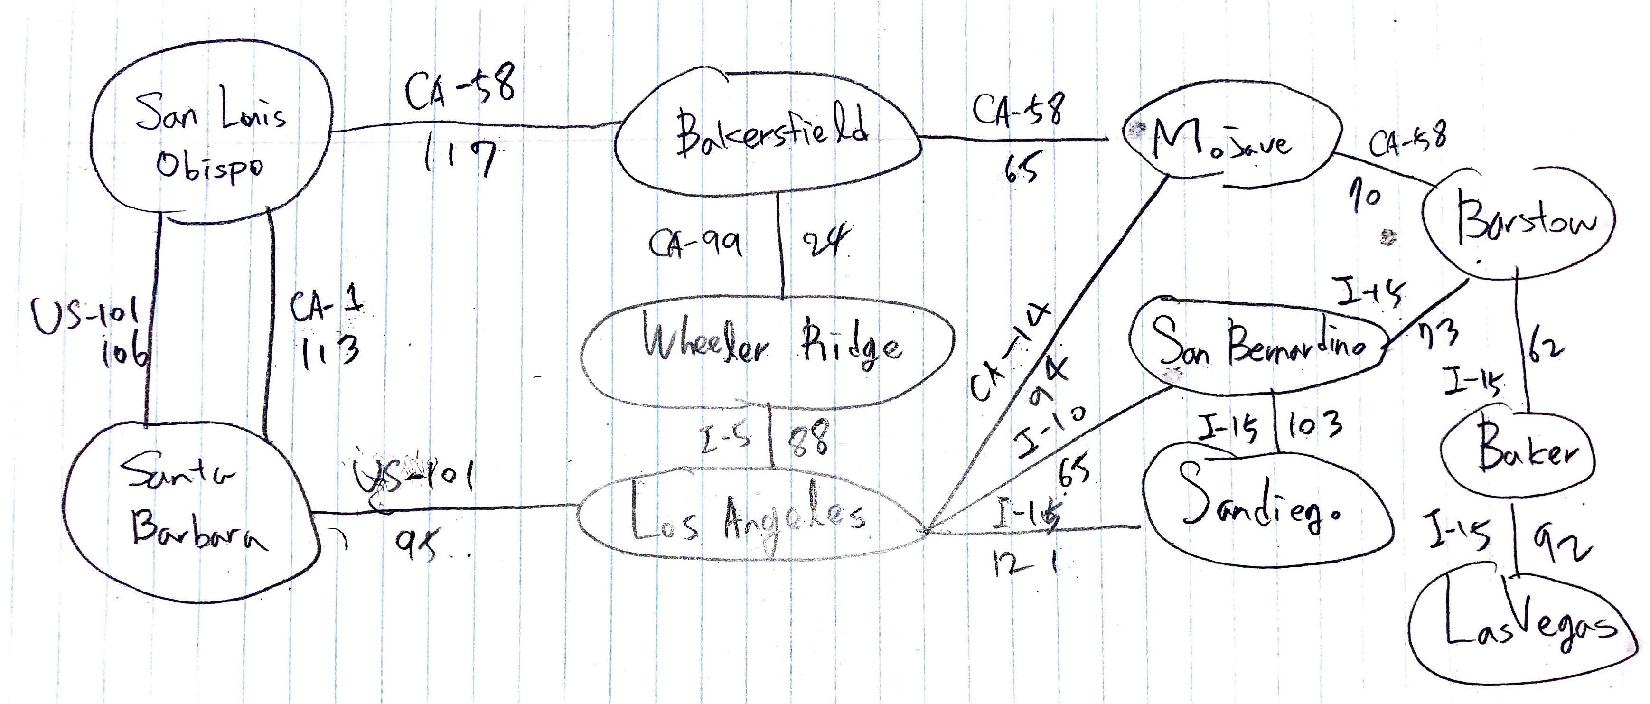 San Luis
Obispo
CA-58
117
Bakersfield
CA-58
65
Mojave
CA-58
70
Barstow
US-101
106
CA-1
113
CA-99
24
Wheeler Ridge
I-5
88
CA-14
94
San Bernardino
I-15
73
I-15
62
Baker
I-10
65
I-15
103
Santa
Barbara
US-101
95
Los Angeles
I-15
121
Sandiego
I-15
92
Las Vegas